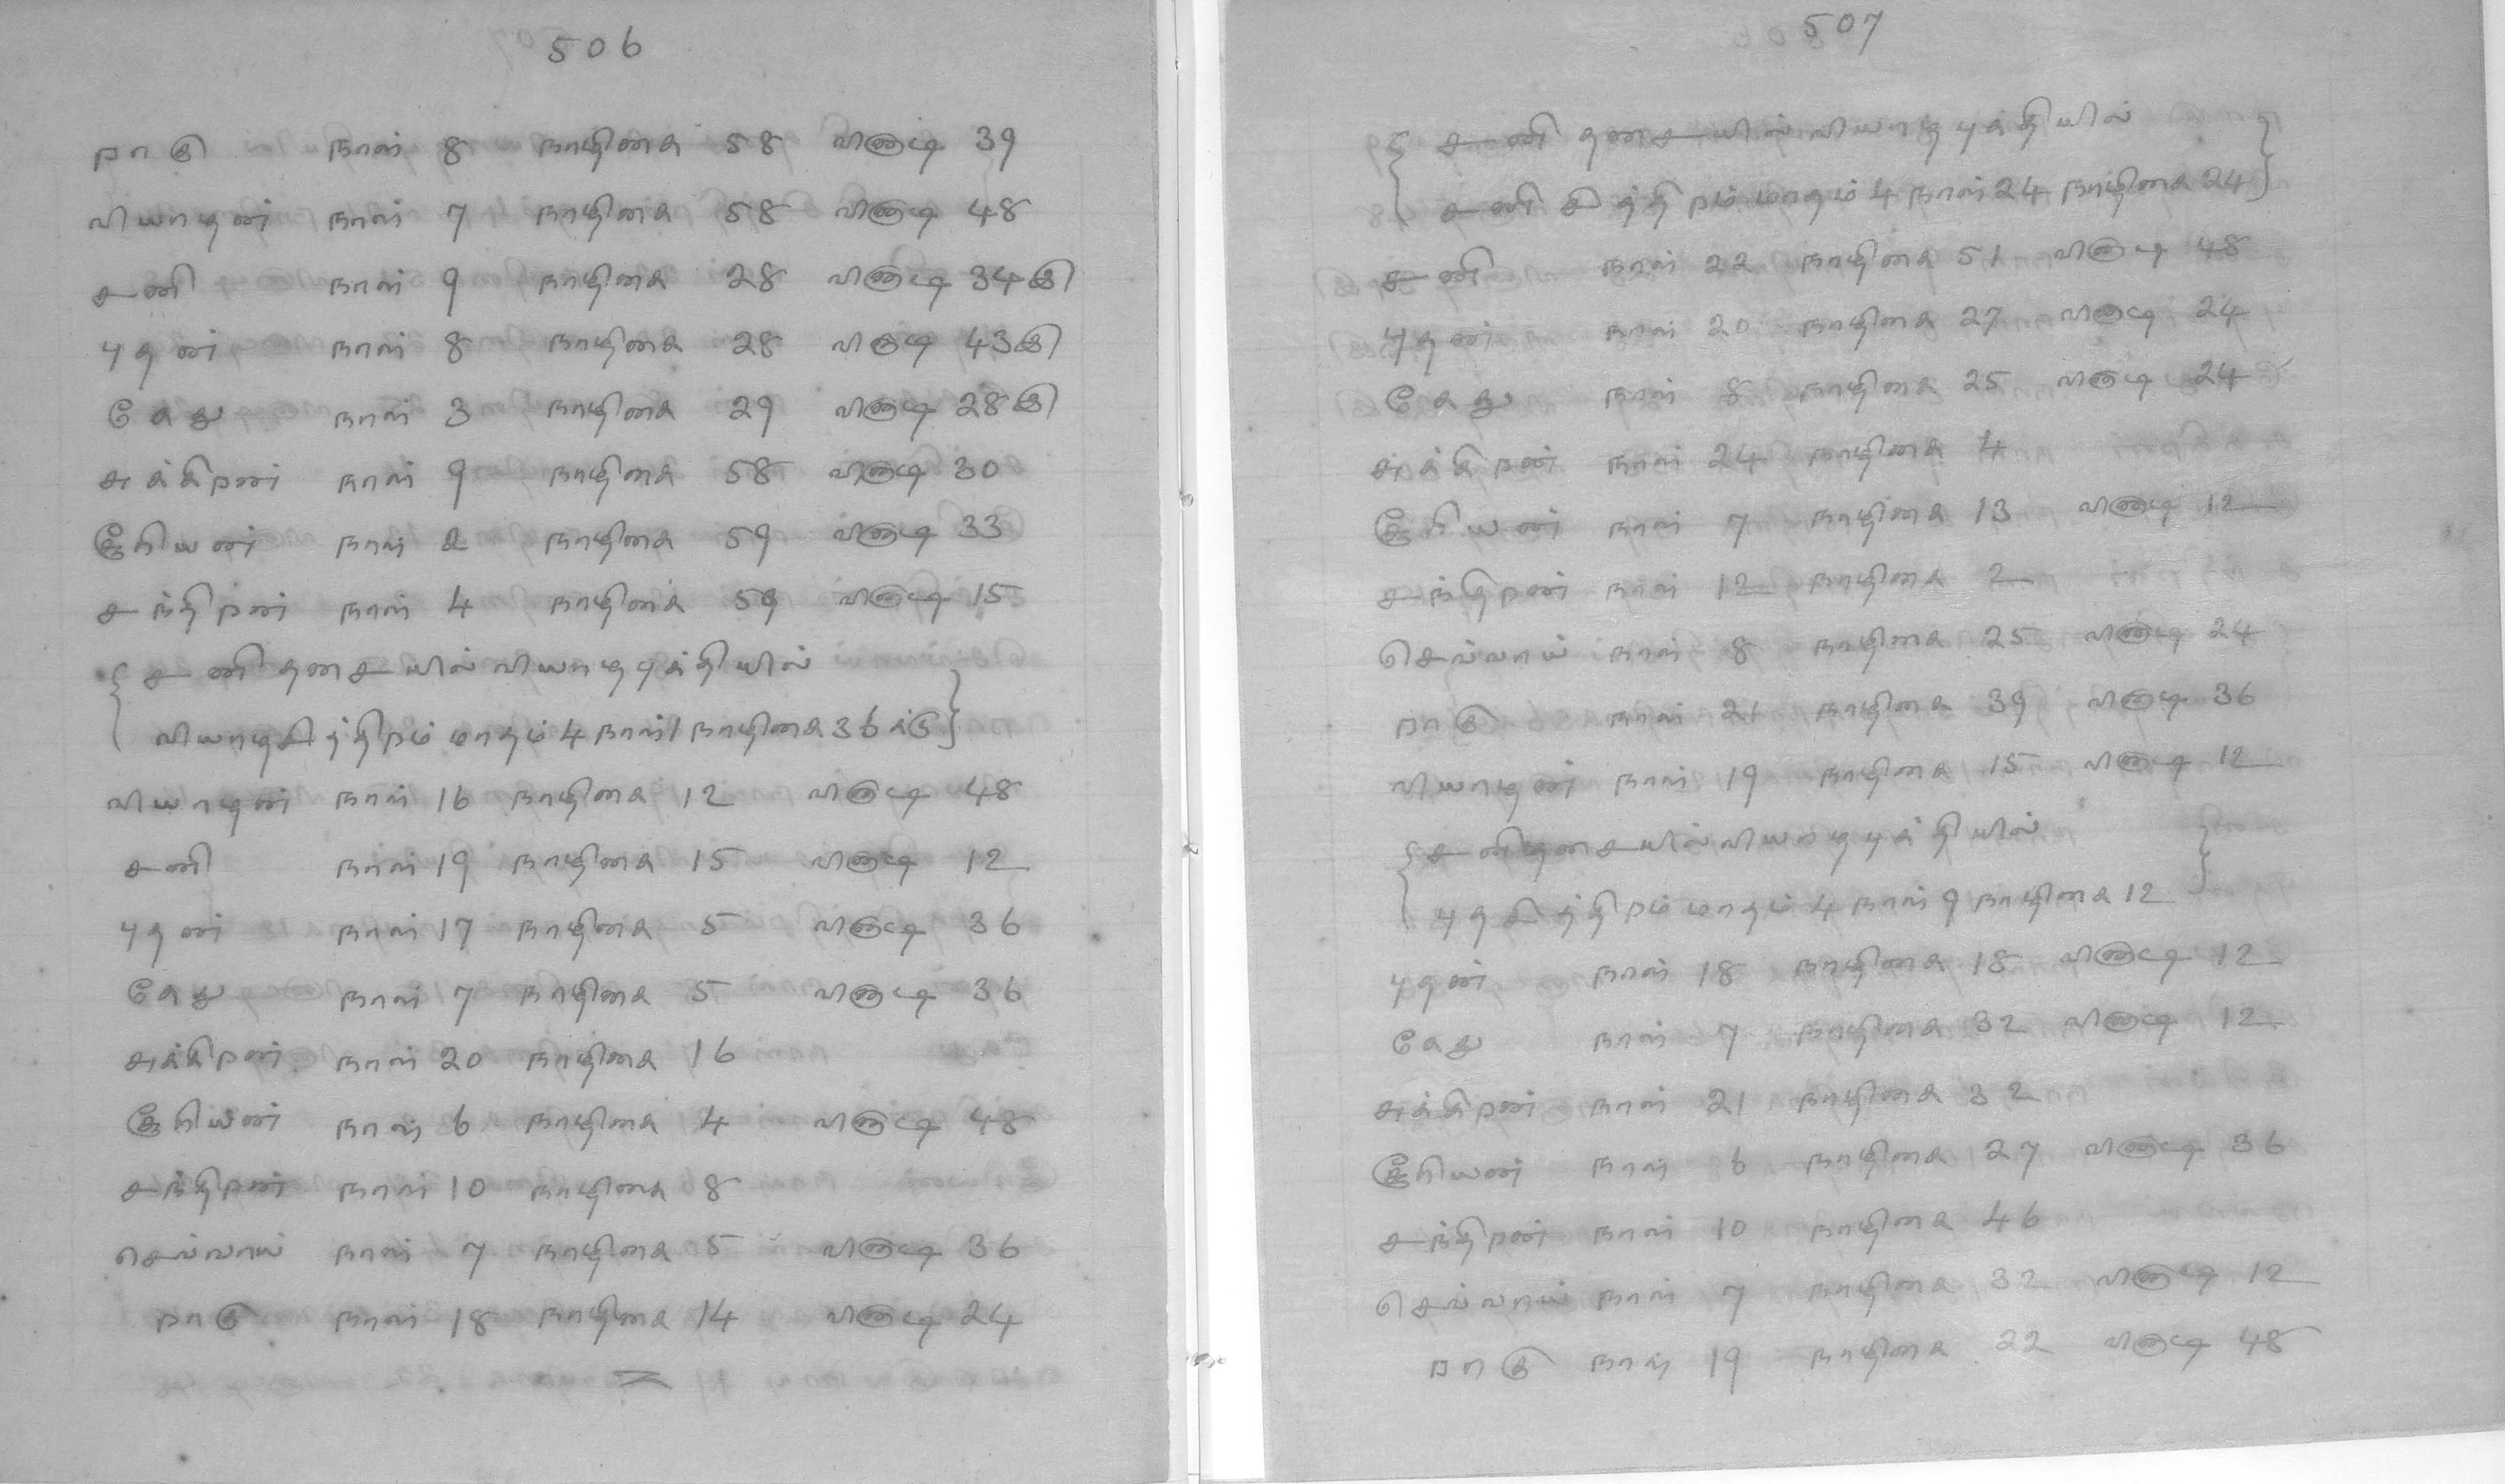 506
ராகு நாள் 8 நாழிகை 58 விநாடி 39
வியாழன் நாள் 7 நாழிகை 58 விநாடி 48
சனி நாள் 9 நாழிகை 28 விநாடி 34இ
புதன் நாள் 8 நாழிகை 28 விநாடி 43இ
கேது நாள் 3 நாழிகை 29 விநாடி 28இ
சுக்கிரன் நாள் 9 நாழிகை 58 விநாடி 30
சூரியன் நாள் 2 நாழிகை 59 விநாடி 33
சந்திரன் நாள் 4 நாழிகை 59 விநாடி 15
{சனி தசையில் வியாழ புக்தியில்
வியாழசித்திரம் மாதம் 4 நாள் 1 நாழிகை 36க்கு}
வியாழன் நாள் 16 நாழிகை 12 விநாடி 48
சனி நாள் 19 நாழிகை 15 விநாடி 12
புதன் நாள் 17 நாழிகை 5 விநாடி 36
கேது நாள் 7 நாழிகை 5 விநாடி 36
சுக்கிரன் நாள் 20 நாழிகை 16
சூரியன் நாள் 6 நாழிகை 4 விநாடி 48
சந்திரன் நாள் 10 நாழிகை 8
செவ்வாய் நாள் 7 நாழிகை 5 விநாடி 36
ராகு நாள் 18 நாழிகை 14 விநாடி 24
507
{சனி தசையில் வியாழ புக்தியில்
சனி சித்திரம் மாதம் 4 நாள் 24 நாழிகை 24}
சனி நாள் 22 நாழிகை 51 விநாடி 48
புதன் நாள் 20 நாழிகை 27 விநாடி 24
கேது நாள் 8 நாழிகை 25 விநாடி 24
சுக்கிரன் நாள் 24 நாழிகை 4
சூரியன் நாள் 7 நாழிகை 13 விநாடி 12
சந்திரன் நாள் 12 நாழிகை 2
செவ்வாய் நாள் 8 நாழிகை 25 விநாடி 24
ராகு நாள் 21 நாழிகை 39 விநாடி 36
வியாழன் நாள் 19 நாழிகை 15 விநாடி 12
{சனிதசையில் வியாழ புக்தியில்
புதசித்திரம் மாதம் 4 நாள் 9 நாழிகை 12}
புதன் நாள் 18 நாழிகை 18 விநாடி 12
கேது நாள் 7 நாழிகை 32 விநாடி 12
சுக்கிரன் நாள் 21 நாழிகை 32
சூரியன் நாள் 6 நாழிகை 27 விநாடி 36
சந்திரன் நாள் 10 நாழிகை 46
செவ்வாய் நாள் 7 நாழிகை 32 விநாடி 12
ராகு நாள் 19 நாழிகை 22 விநாடி 48